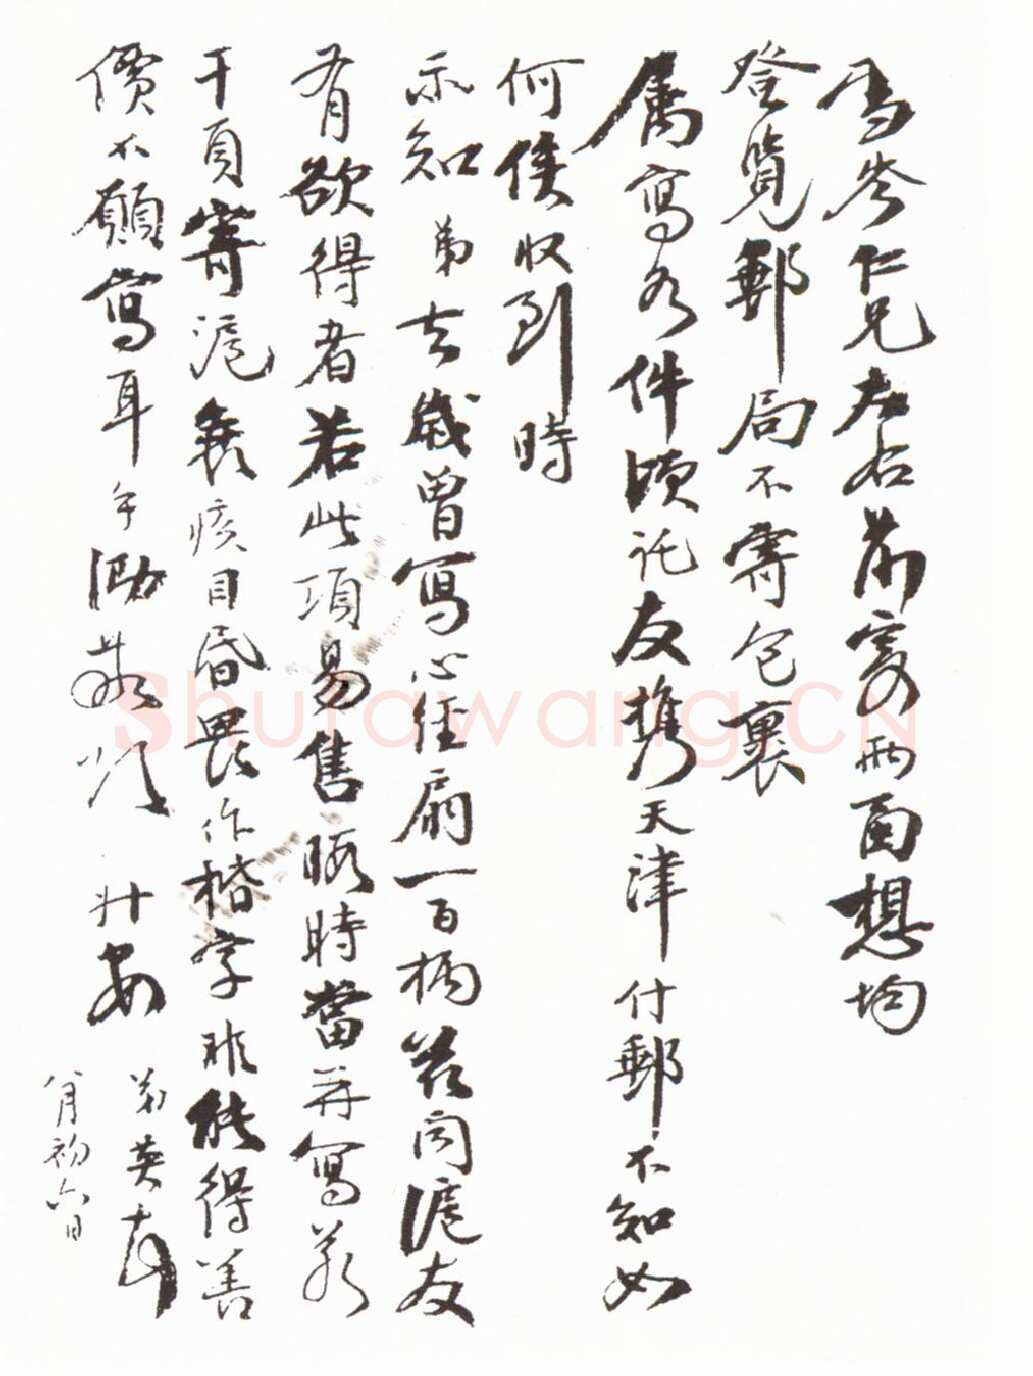 雪岑仁兄左右前寄兩函想均
登覽郵局不寄包裹
属寫各件頃託友攜天津付郵不知如
何俟收到時
示知弟去歲曾寫心經扇一百柄茲聞滬友
有欲得者若此項易售暇時當再寫若
干頁寄滬衰疾目昏畏作楷字非能得善
價不願寫耳手泐敬頌
廾安
弟英
八月初六日
Shufawang.CN